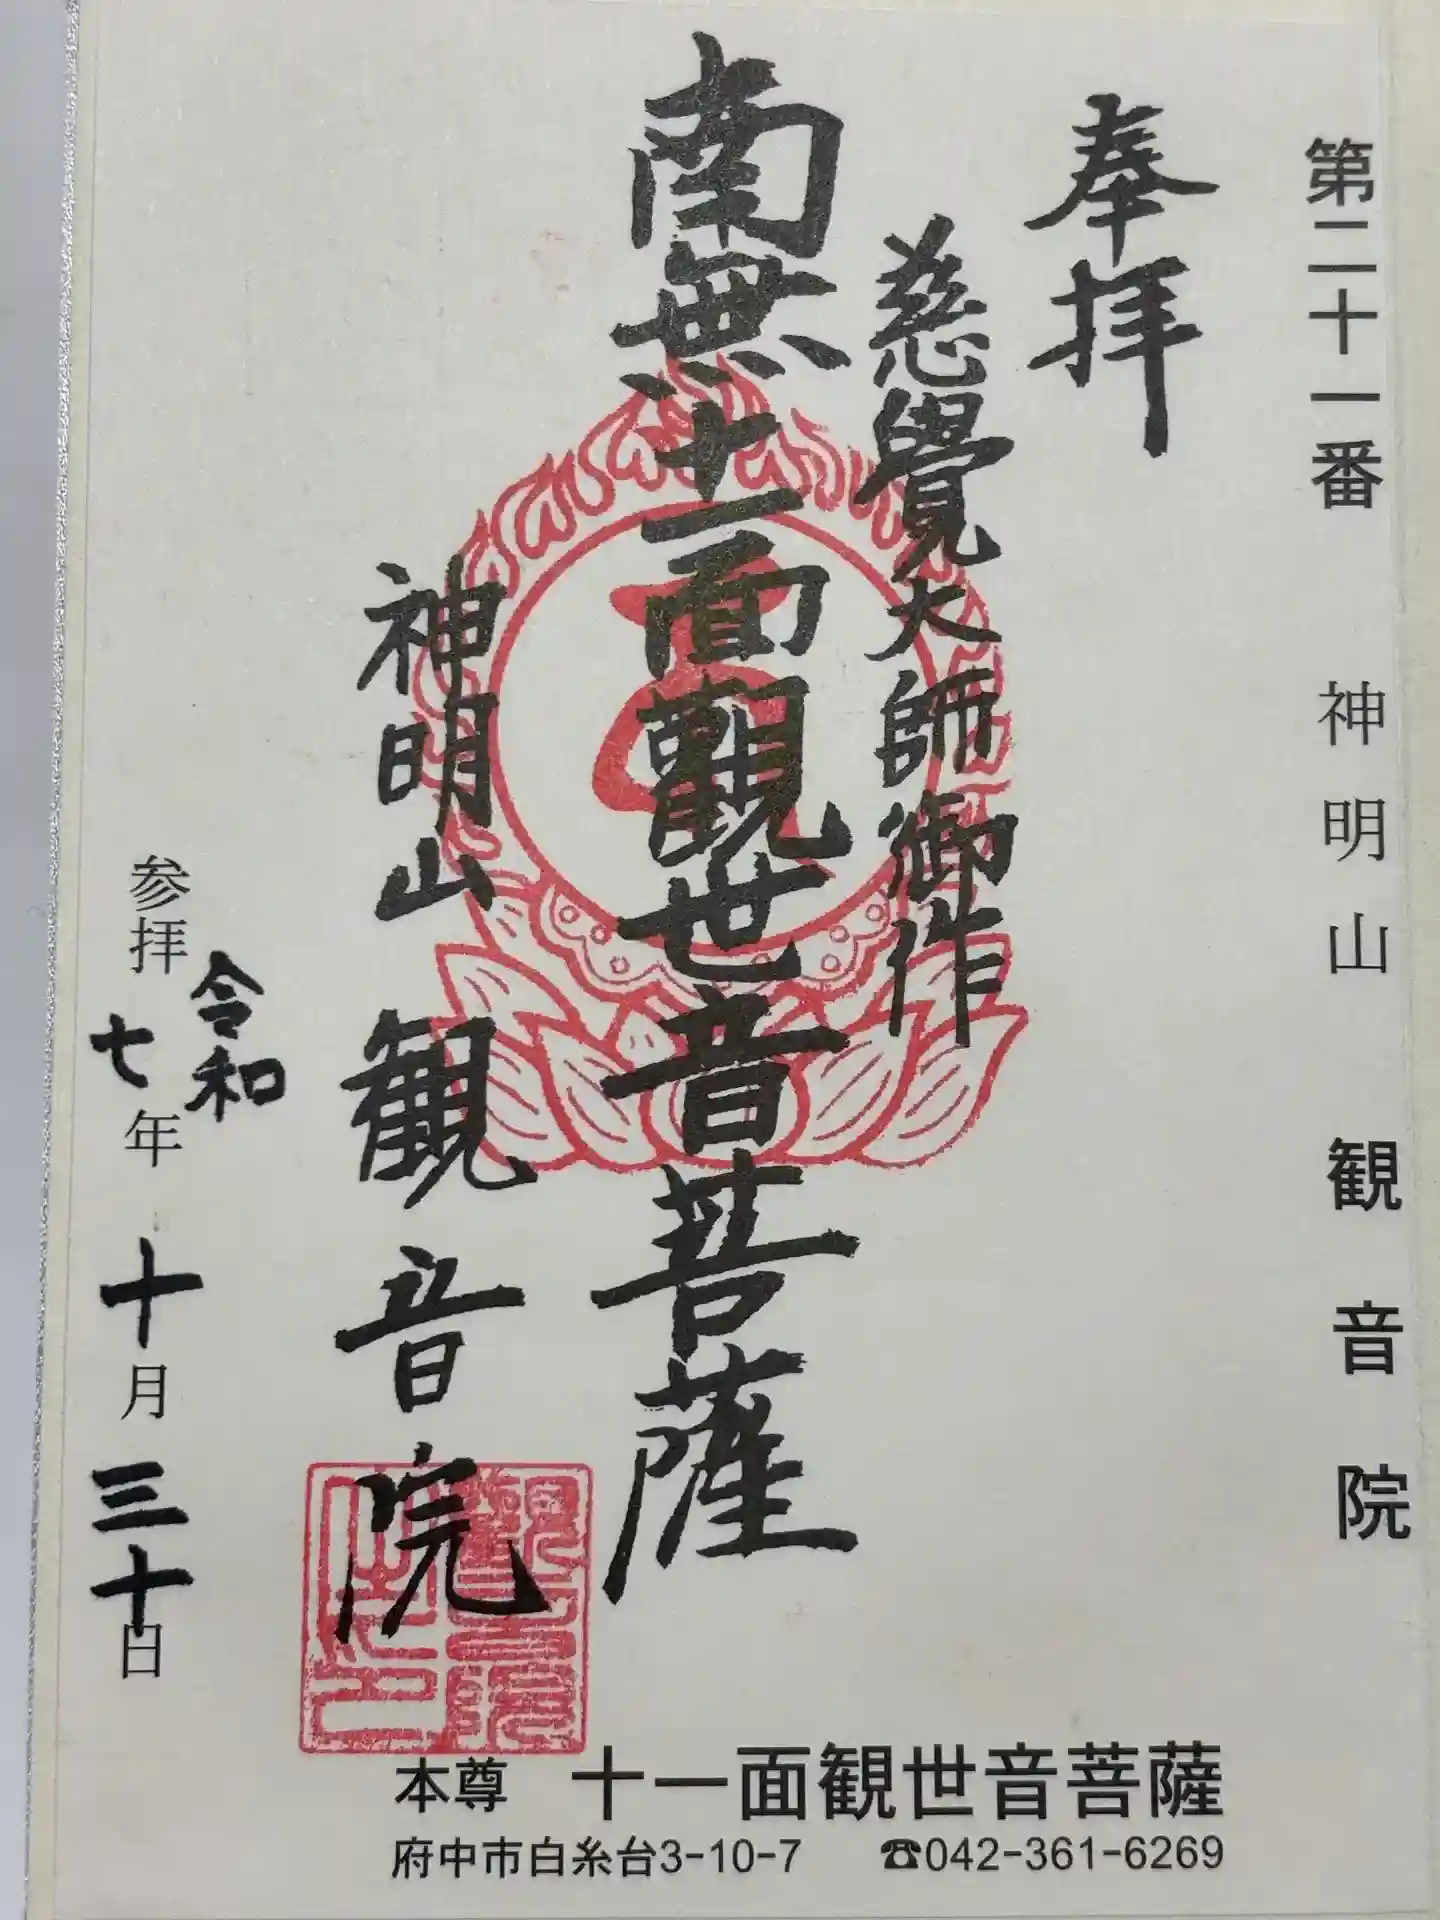 第二十一番　神明山　観音院
奉拝
慈覺大師御作
南無十一面觀世音菩薩
神明山　観音院
令和
参拝七年十月三十日
本尊　十一面観世音菩薩
府中市白糸台3-10-7　☎042-361-6269